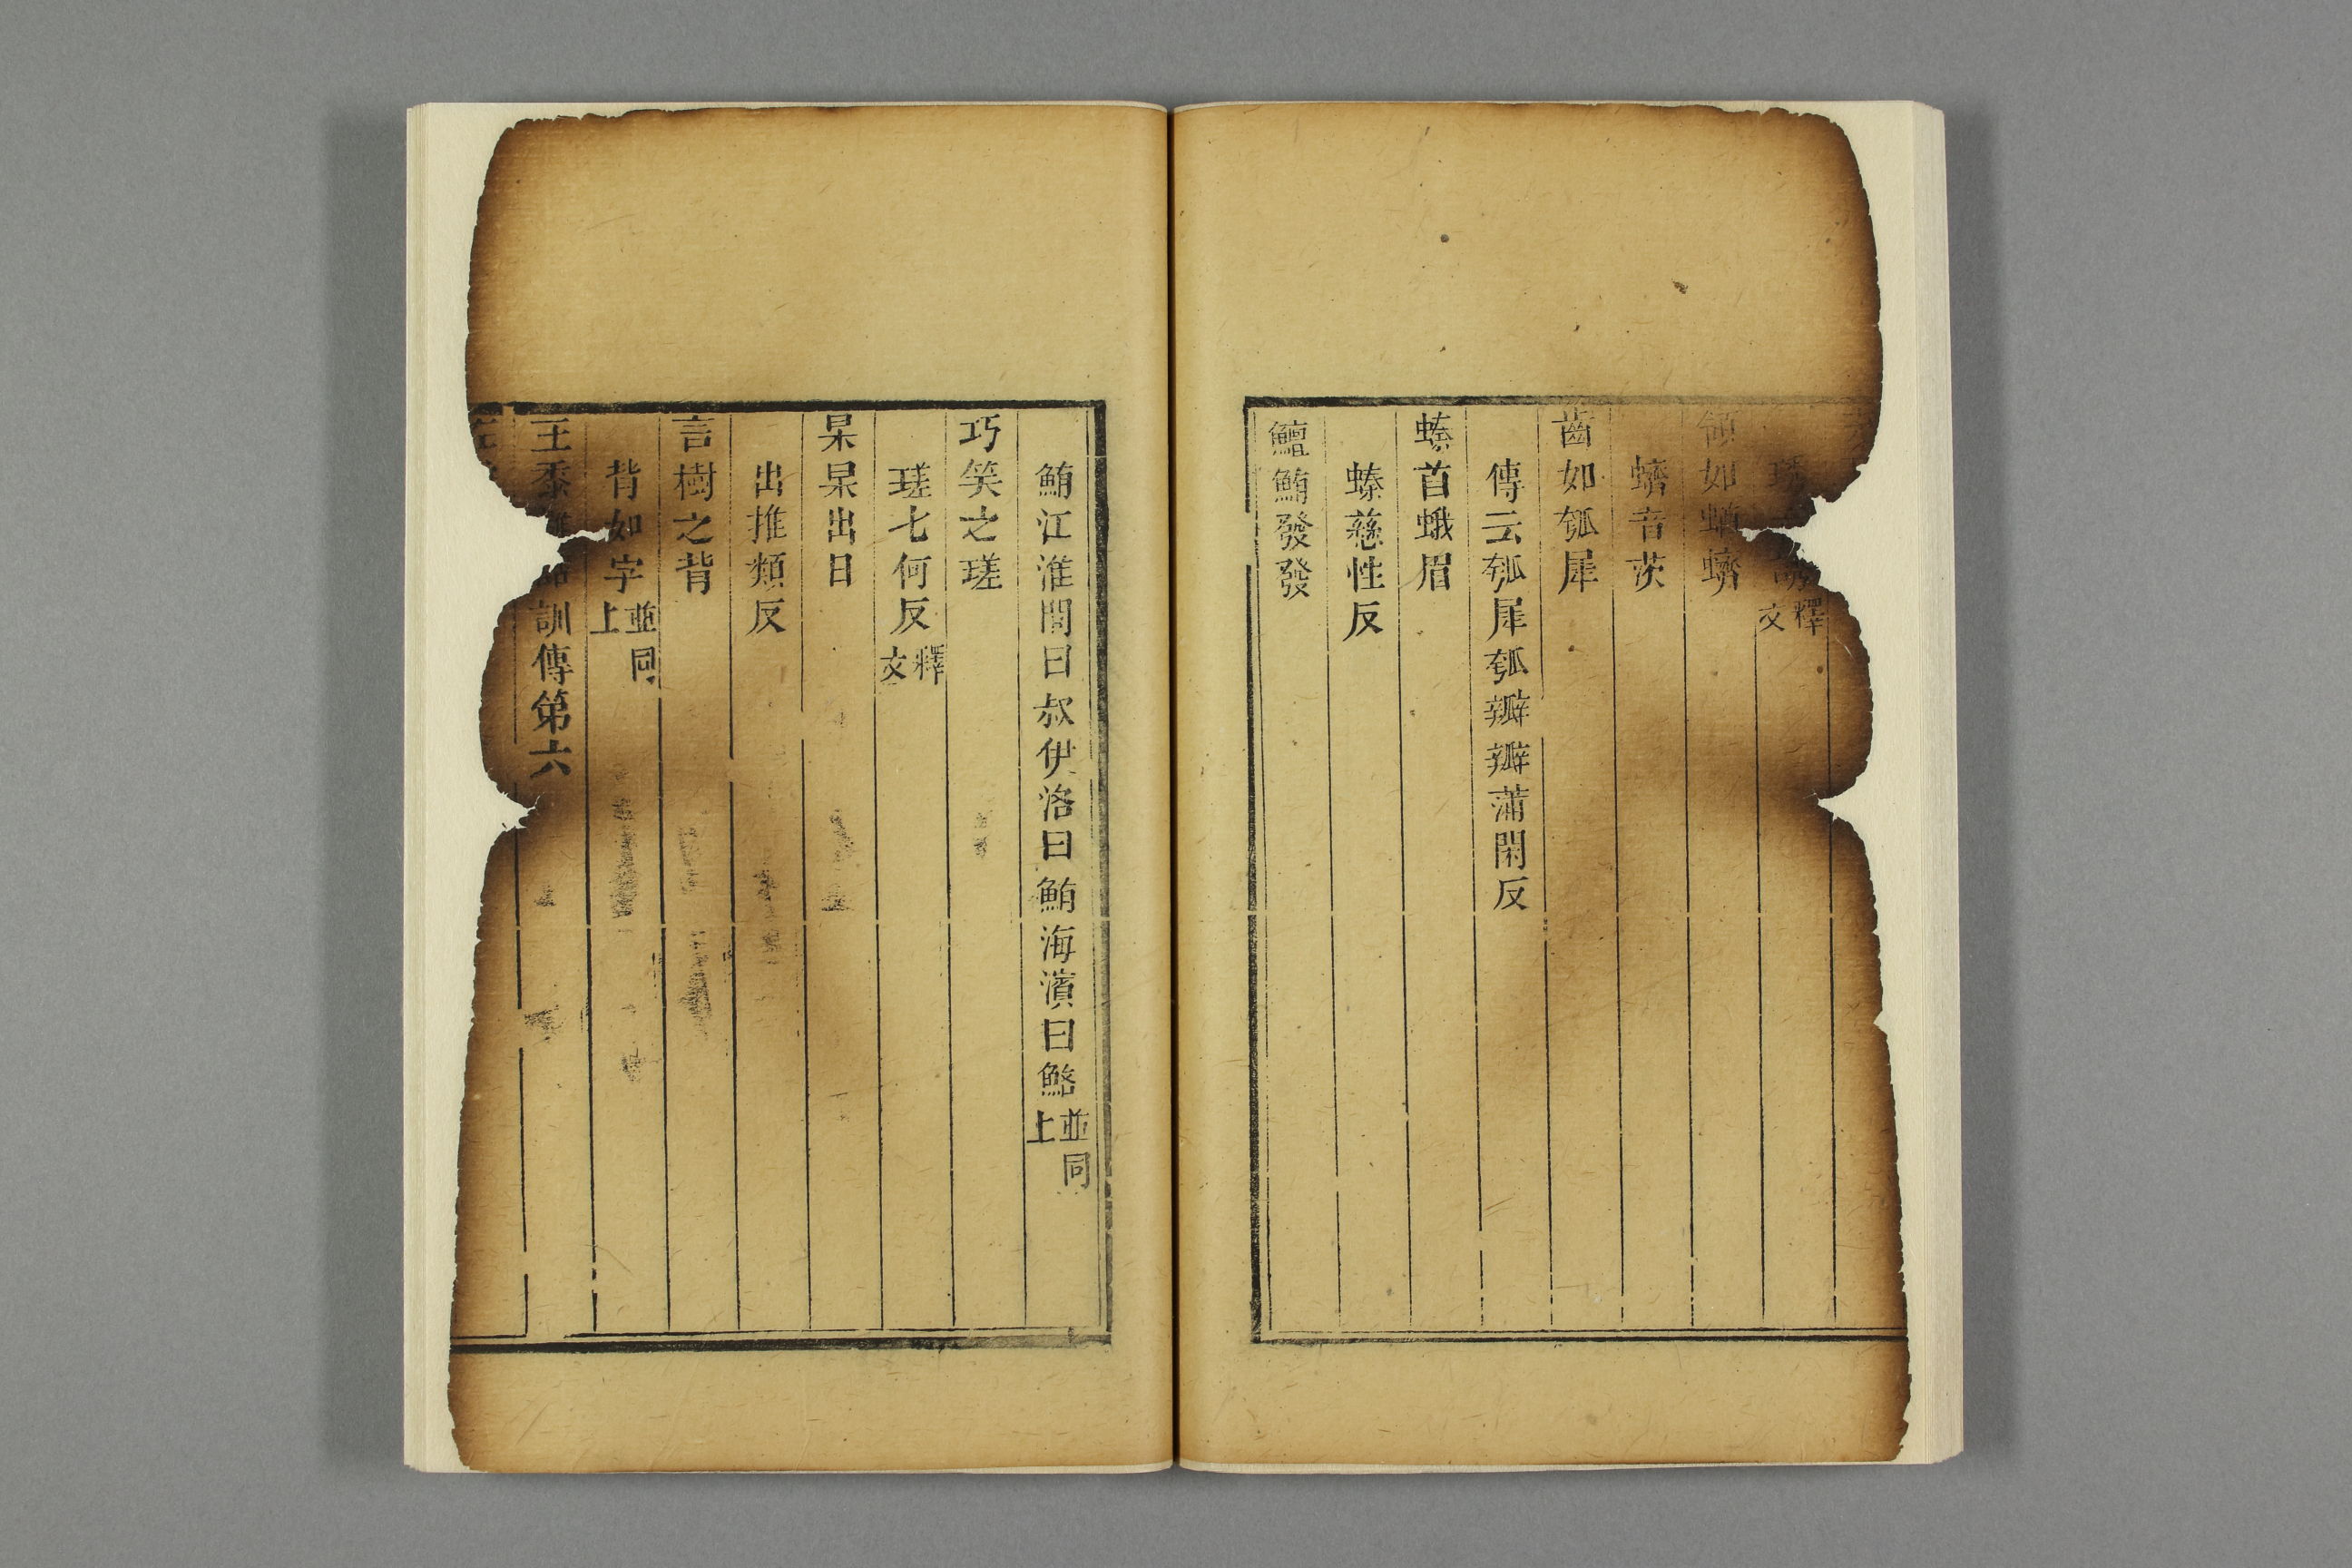 釋文
領如蝤蠐
蠐音茨
齒如瓠犀
傳云瓠犀瓠瓣瓣蒲閑反
螓首蛾眉
螓慈性反
鱣鮪發發
鮪江淮間曰叔伊洛曰鮪海濵曰䱟並同上
巧笑之瑳
瑳七何反釋文
杲杲出日
出推類反
言樹之背
背如字並同上
王黍訓傳第六